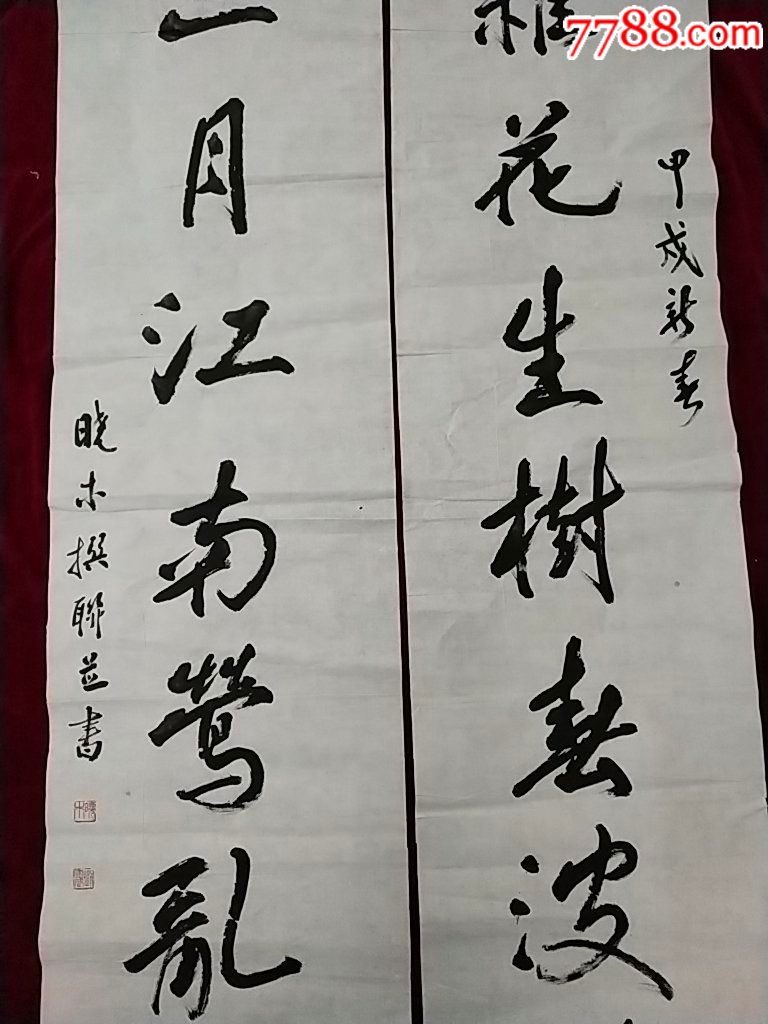 7788.com
甲戌新春
花生樹春波
月江南鶯亂
晓木撰聯並書